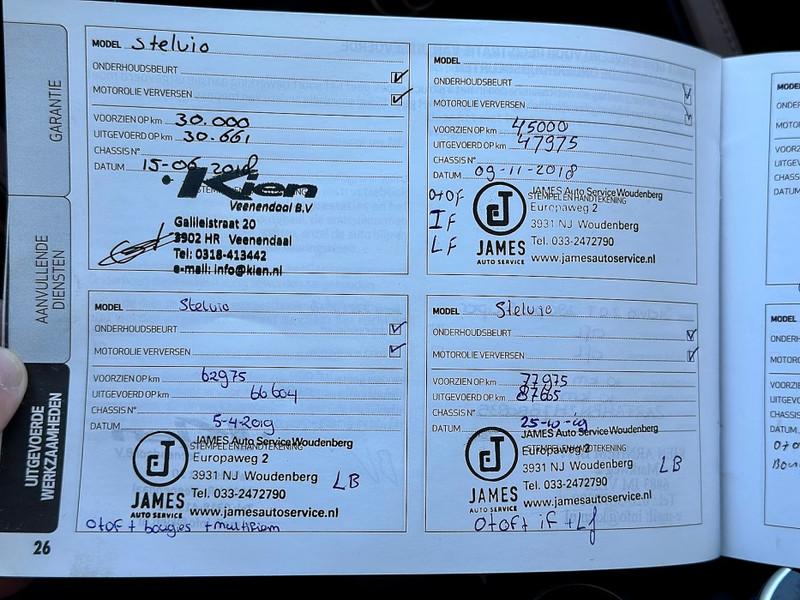 GARANTIE
AANVULLENDE
DIENSTEN
UITGEVOERDE
WERKZAAMHEDEN
26
MODEL Stelvio
ONDERHOUDSBEURT
MOTOROLIE VERVERSEN
VOORZIEN OP km 30.000
UITGEVOERD OP km 30.661
CHASSIS N°
DATUM 15-06-2018
Kien
Veenendaal B.V
Galileistraat 20
3902 HR Veenendaal
Tel: 0318-413442
e-mail: info@kien.nl
MODEL
ONDERHOUDSBEURT
MOTOROLIE VERVERSEN
VOORZIEN OP km 45000
UITGEVOERD OP km 47975
CHASSIS N°
DATUM 09-11-2018
STEMPEL EN HANDTEKENING
O+OF
IF
LF
JAMES
AUTO SERVICE
JAMES Auto Service Woudenberg
Europaweg 2
3931 NJ Woudenberg
Tel. 033-2472790
www.jamesautoservice.nl
MODEL Stelvio
ONDERHOUDSBEURT
MOTOROLIE VERVERSEN
VOORZIEN OP km 62975
UITGEVOERD OP km 66604
CHASSIS N°
DATUM 5-4-2019
STEMPEL EN HANDTEKENING
JAMES
AUTO SERVICE
JAMES Auto Service Woudenberg
Europaweg 2
3931 NJ Woudenberg
Tel. 033-2472790
www.jamesautoservice.nl
LB
O+OF + bougies + multiriem
MODEL Stelvio
ONDERHOUDSBEURT
MOTOROLIE VERVERSEN
VOORZIEN OP km 77975
UITGEVOERD OP km 87665
CHASSIS N°
DATUM 25-10-19
STEMPEL EN HANDTEKENING
JAMES
AUTO SERVICE
JAMES Auto Service Woudenberg
Europaweg 2
3931 NJ Woudenberg
Tel. 033-2472790
www.jamesautoservice.nl
LB
O+OF+ if + Lf